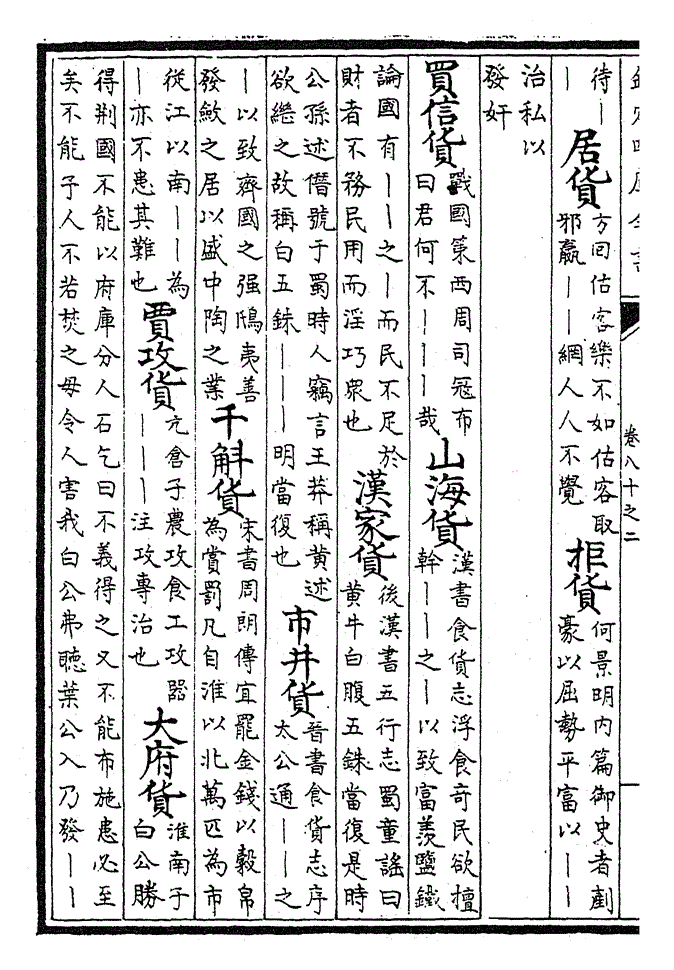 欽定四庫全書
卷八十之二
待｜
｜
居貨
方回估客樂不如估客取
邪贏｜｜網人人不覺
拒貨
何景明内篇御史者剷
豪以屈勢平富以｜｜
治私以
發奸
買信貨
戰國策西周司寇布
曰君何不｜｜｜哉
山海貨
漢書食貨志浮食竒民欲擅
幹｜｜之｜以致富羨鹽鐵
論國有｜｜之｜而民不足於
財者不務民用而淫巧衆也
漢家貨
後漢書五行志蜀童謡曰
黄牛白腹五銖當復是時
公孫述僭號于蜀時人竊言王莽稱黄述
欲繼之故稱白五銖｜｜｜明當復也
市井貨
晉書食貨志序
太公通｜｜之
｜以致齊國之强鴟夷善
發斂之居以盛中陶之業
千斛貨
宋書周朗傳宜罷金錢以穀帛
為賞罰凡自淮以北萬匹為市
從江以南｜｜為
｜亦不患其難也
賈攻貨
亢倉子農攻食工攻器
｜｜｜注攻專治也
大府貨
淮南子
白公勝
得荆國不能以府庫分人石乞曰不義得之又不能布施患必至
矣不能予人不若焚之毋令人害我白公弗聽葉公入乃發｜｜